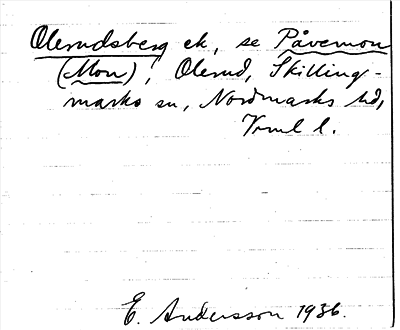 Olerudsberg ek, se Påvemon
(Mon); Olerud, Skilling-
marks sn, Nordmarks hd,
Vrml l.
E. Andersson 1936.